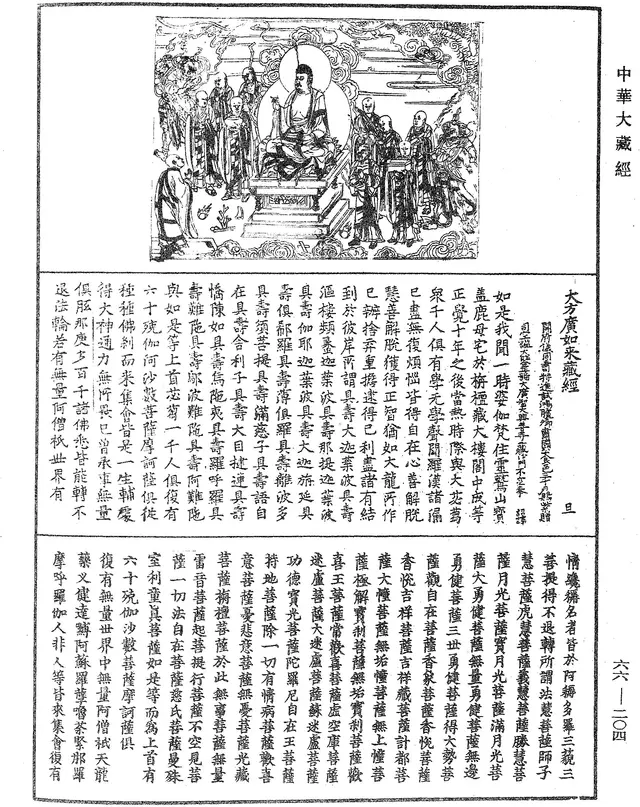 中華大藏經
大方廣如來藏經 旦
開府儀同三司特進試鴻臚卿肅國公食邑三千戶賜紫贈
司空謚大鑒正號大廣智大興善寺三藏沙門不空奉 詔譯
如是我聞一時婆伽梵住靈鷲山寶
蓋鹿母宅於栴檀藏大樓閣中成等
正覺十年之後當熱時際與大苾芻
衆千人俱有學无學聲聞羅漢諸漏
已盡無復煩惱皆得自在心善解脫
慧善解脫獲得正智猶如大龍所作
已辦捨弃重擔逮得已利盡諸有結
到於彼岸所謂具壽大迦葉波具壽
漚樓頻螽迦葉波具壽那提迦葉波
具壽伽耶迦葉波具壽大迦旃延具
壽俱郗羅具壽薄俱羅具壽離波多
具壽須菩提具壽滿慈子具壽語自
在具壽舍利子具壽大目揵連具壽
憍陳如具壽烏陁夷具壽羅呼羅具
壽難陁具壽鄔波難陁具壽阿難陁
與如是等上首苾芻一千人俱復有
六十殑伽河沙數菩薩摩訶薩俱從
種種佛刹而來集會皆是一生補處
得大神通力無所畏已曾承事無量
俱胝那庾多百千諸佛悉皆能轉不
退法輪若有無量阿僧祇世界有
情纔稱名者皆於阿耨多羅三藐三
菩提得不退轉所謂法慧菩薩師子
慧菩薩虎慧菩薩義慧菩薩勝慧菩
薩月光菩薩寶月光菩薩滿月光菩
薩大勇健菩薩無量勇健菩薩無邊
勇健菩薩三世勇健菩薩得大勢菩
薩觀自在菩薩香象菩薩香悅菩薩
香悅吉祥菩薩吉祥藏菩薩計都菩
薩大幢菩薩無垢幢菩薩無上幢菩
薩極解寶刹菩薩無垢寶刹菩薩歡
喜王菩薩常歡喜菩薩虛空庫菩薩
迷盧菩薩大迷盧菩薩蘇迷盧菩薩
功德寶光菩薩陀羅尼自在王菩薩
持地菩薩除一切有情病菩薩歡喜
意菩薩憂悲意菩薩無憂菩薩光藏
菩薩栴檀菩薩於此無事菩薩無量
雷音菩薩起菩提行菩薩不空見菩
薩一切法自在菩薩慈氏菩薩曼殊
室利童真菩薩如是等而爲上首有
六十殑伽沙數菩薩摩訶薩俱
復有無量世界中無量阿僧祇天龍
藥叉健達嚩阿蘇羅孽嚕荼緊那羅
摩呼羅伽人非人等皆來集會復有
六六—二〇四